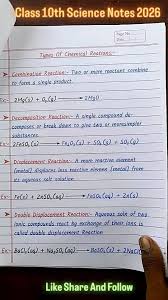 Class 10th Science Notes 2026
Page No.
Date
Types Of Chemical Reactions:-
Combination Reaction:- Two or more reactant combine
to form a single product.
Ex:- 2Mg(s) + O₂(g) → 2MgO
Decomposition Reaction:- A single compound de-
composes or break down to give two or more simpler
substances.
Ex:- 2FeSO₄(s) → Fe₂O₃(s) + SO₂(g) + SO₃(g)
Displacement Reaction:- A more reactive element
(metal) displaces less reactive element (metal) from
its aqueous salt solution
Ex:- Fe(s) + ZnSO₄(aq) → FeSO₄(aq) + Zn(s)
Double Displacement Reaction:- Aqueous salt of two
ionic compounds react by exchange of their ions is
called double displacement Reaction
Ex:- BaCl₂(aq) + Na₂SO₄(aq) → BaSO₄(s) + 2NaCl(aq)
Like Share And Follow